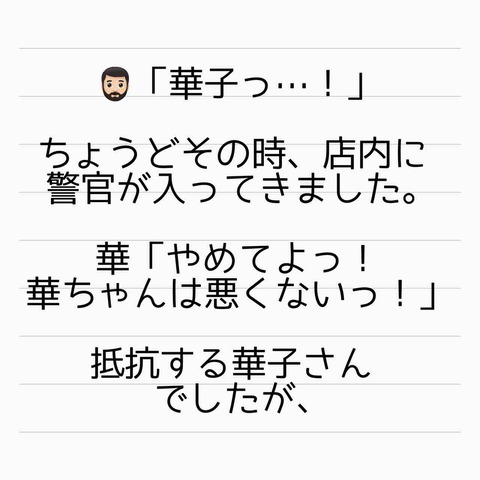 🧔🏻「華子っ…！」
ちょうどその時、店内に
警官が入ってきました。
華「やめてよっ！
華ちゃんは悪くないっ！」
抵抗する華子さん
でしたが、